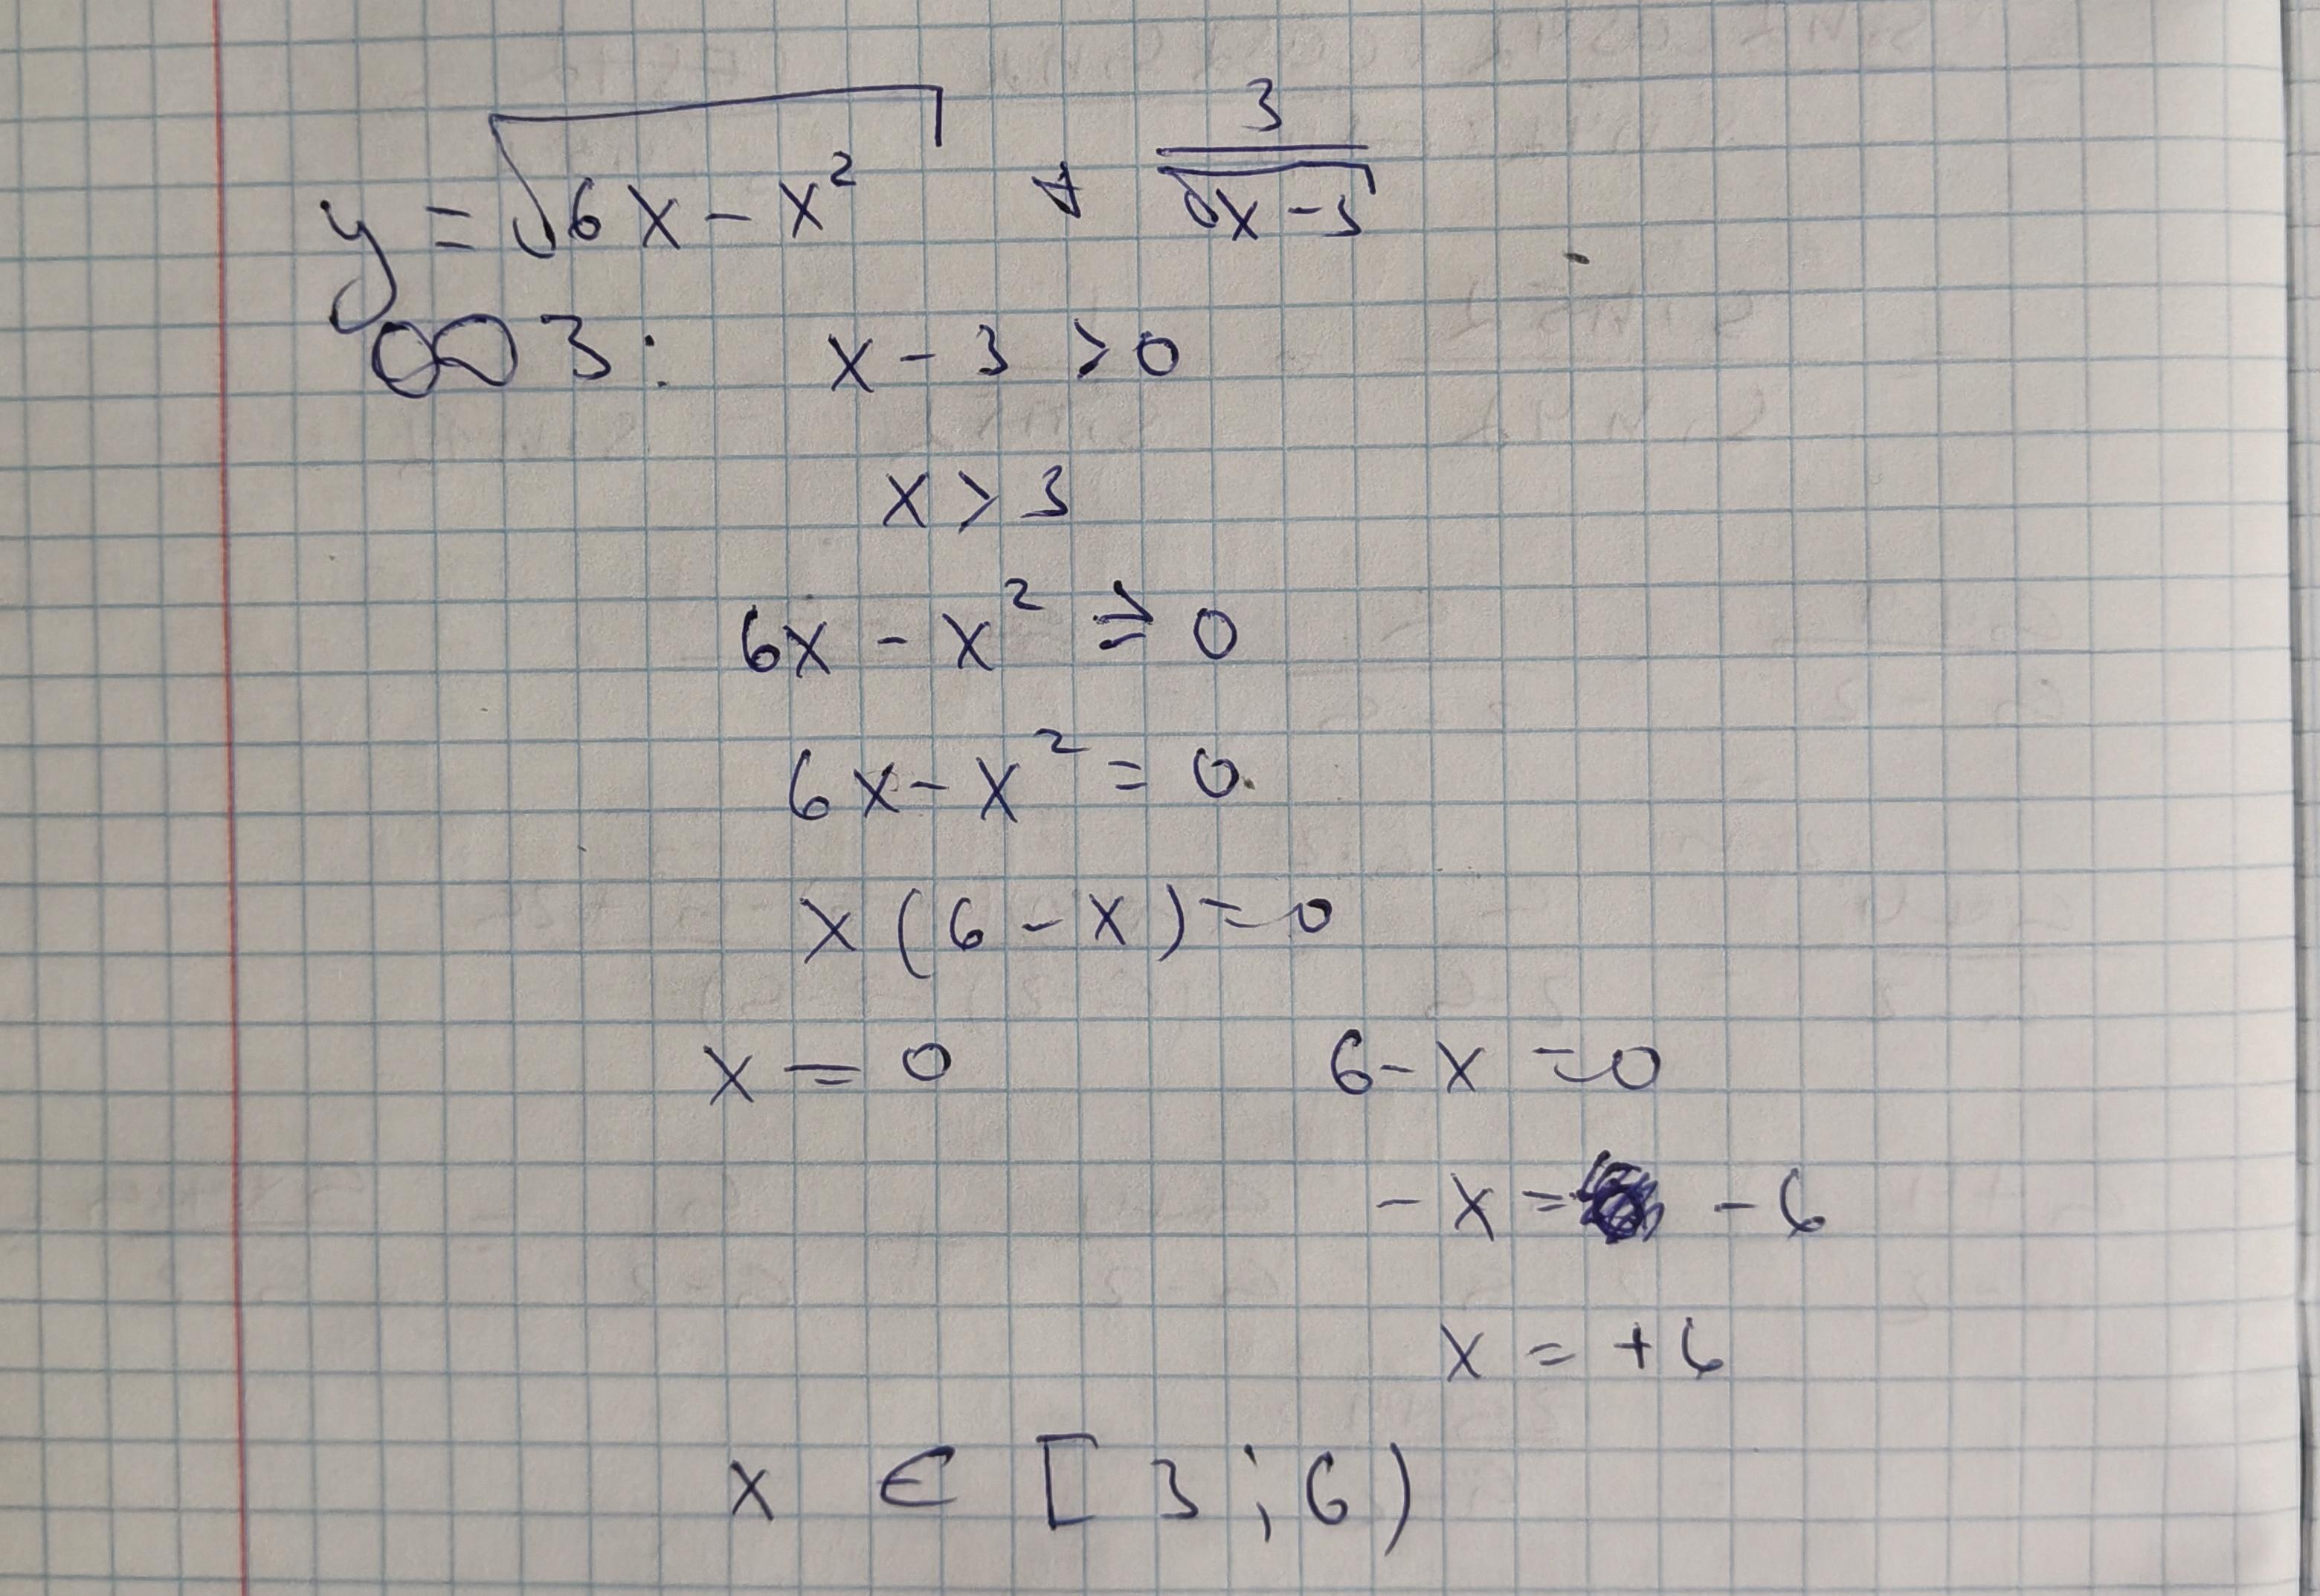 y = √(6x - x²) + 3/√(x-3)
ООЗ: x - 3 > 0
x > 3
6x - x² ⩾ 0
6x - x² = 0
x (6 - x) = 0
x = 0 6 - x = 0
- x = - 6
x = + 6
x ∈ [3 ; 6)